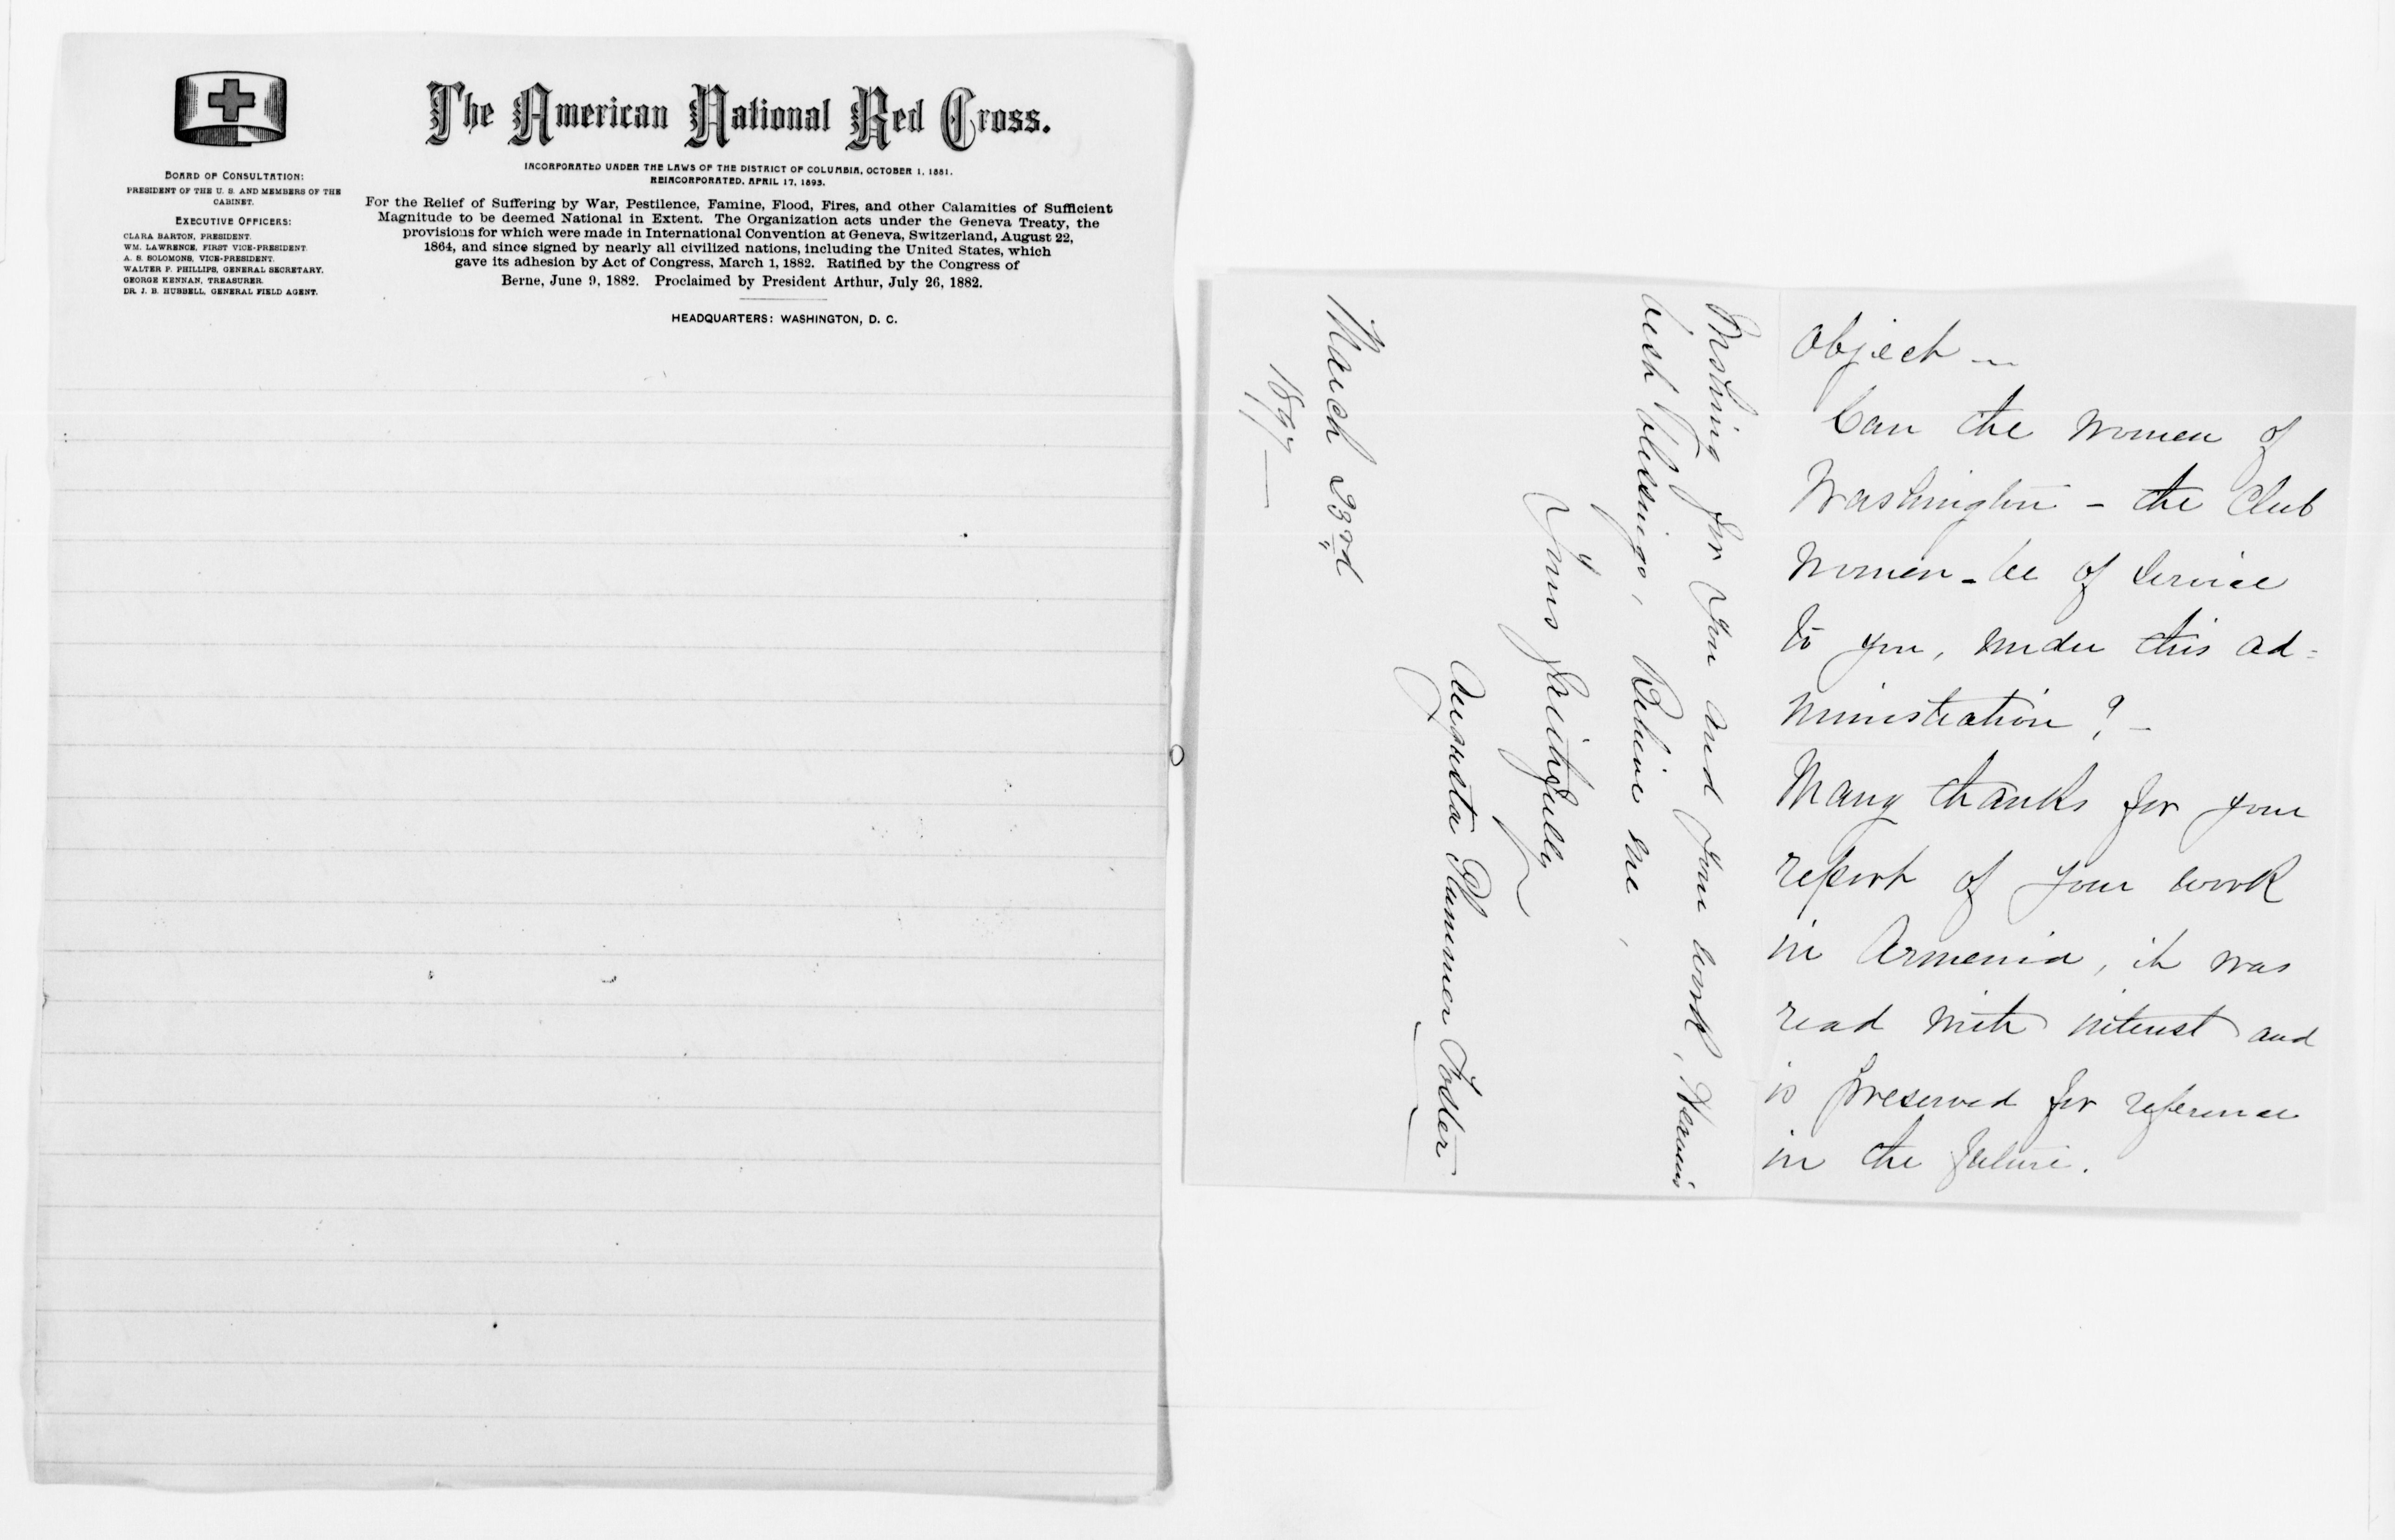 The American National Red Cross.
INCORPORATED UNDER THE LAWS OF THE DISTRICT OF COLUMBIA, OCTOBER 1, 1881.
REINCORPORATED, APRIL 17, 1893.
For the Relief of Suffering by War, Pestilence, Famine, Flood, Fires, and other Calamities of Sufficient
Magnitude to be deemed National in Extent. The Organization acts under the Geneva Treaty, the
provisions for which were made in International Convention at Geneva, Switzerland, August 22,
1864, and since signed by nearly all civilized nations, including the United States, which
gave its adhesion by Act of Congress, March 1, 1882. Ratified by the Congress of
Berne, June 9, 1882. Proclaimed by President Arthur, July 26, 1882.
HEADQUARTERS: WASHINGTON, D. C.
BOARD OF CONSULTATION:
PRESIDENT OF THE U. S. AND MEMBERS OF THE
CABINET.
EXECUTIVE OFFICERS:
CLARA BARTON, PRESIDENT.
WM. LAWRENCE, FIRST VICE-PRESIDENT.
A. S. SOLOMONS, VICE-PRESIDENT.
WALTER P. PHILLIPS, GENERAL SECRETARY.
GEORGE KENNAN, TREASURER.
DR. J. B. HUBBELL, GENERAL FIELD AGENT.
Object —
Can the women of
Washington - the Club
women - be of service
to you, under this ad=
ministration? -
Many thanks for your
report of your work
in Armenia, it was
read with interest and
is preserved for reference
in the future.
Wishing for you and your work, Heavens
best blessings, Believe me,
Yours faithfully
Augusta Plummer Foster
March 23rd
1897 —